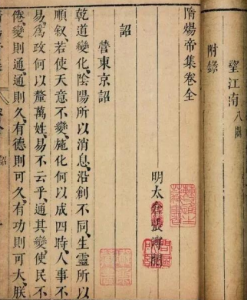 望江南八闋
附錄
隋煬帝集卷全
明太倉張溥閱
詔
營東京詔
乾道變化陰陽所以消息沿創不同生靈所以
順叙若使天意不變施化何以成四時人事不
易為政何以釐萬姓易不云乎通其變使民不
倦變則通通則久有德則可久有功則可大朕